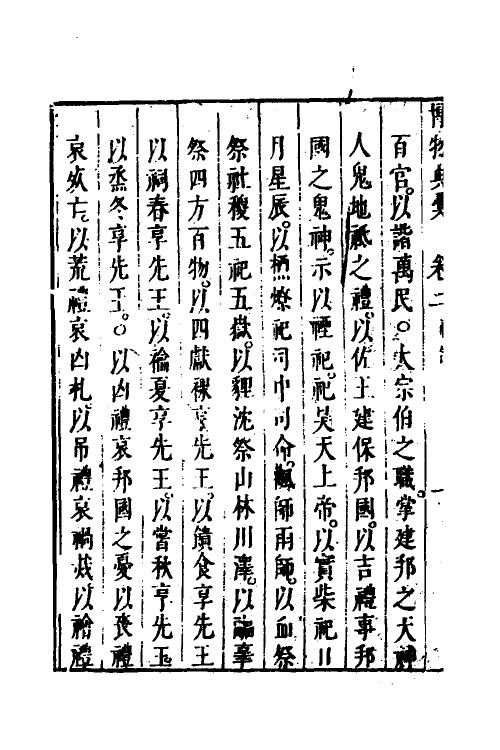 博物典彙 卷二 禮制 一
百官以諧萬民○大宗伯之職掌建邦之天神
人鬼地祗之禮以佐王建保邦國以吉禮事邦
國之鬼神示以禋祀祀昊天上帝以實柴祀日
月星辰以槱燎祀司中司命飌師雨師以血祭
祭社稷五祀五嶽以貍沈祭山林川澤以疈辜
祭四方百物以四獻祼享先王以饋食享先王
以祠春享先王以禴夏享先王以嘗秋享先王
以烝冬享先王○以凶禮哀邦國之憂以喪禮
哀死亡以荒禮哀凶札以吊禮哀禍烖以禬禮